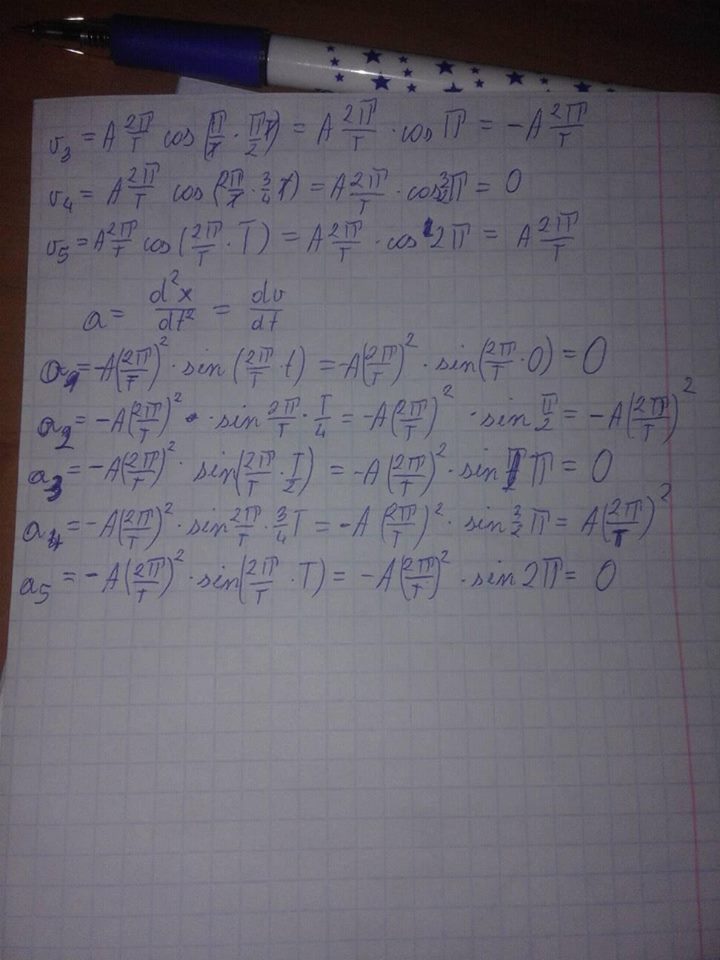 v₃ = A 2π/T cos(π/T · πT/2) = A 2π/T · cos π = -A 2π/T
v₄ = A 2π/T cos(2π/T · 3/4 T) = A 2π/T · cos 3/2 π = 0
v₅ = A 2π/T cos(2π/T · T) = A 2π/T · cos 2π = A 2π/T
a = d²x/dt² = dv/dt
a₁ = -A(2π/T)² · sin(2π/T · t) = -A(2π/T)² · sin(2π/T · 0) = 0
a₂ = -A(2π/T)² · sin 2π/T · T/4 = -A(2π/T)² · sin π/2 = -A(2π/T)²
a₃ = -A(2π/T)² · sin(2π/T · T/2) = -A(2π/T)² · sin π = 0
a₄ = -A(2π/T)² · sin 2π/T · 3/4 T = -A(2π/T)² · sin 3/2 π = A(2π/T)²
a₅ = -A(2π/T)² · sin(2π/T · T) = -A(2π/T)² · sin 2π = 0